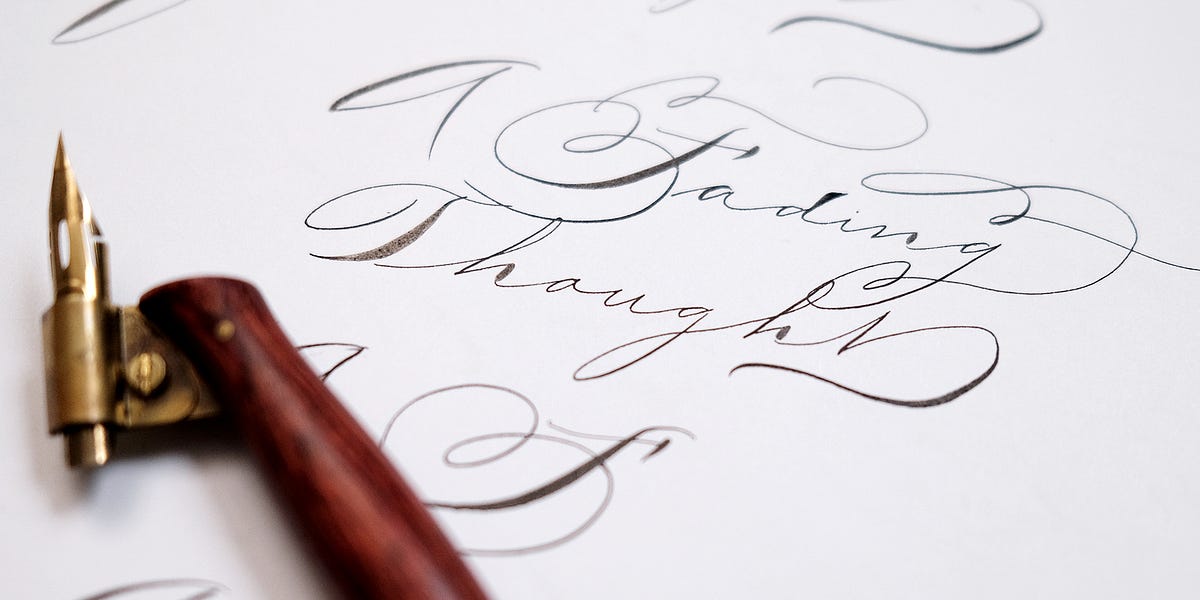 A Fading
Thought
F